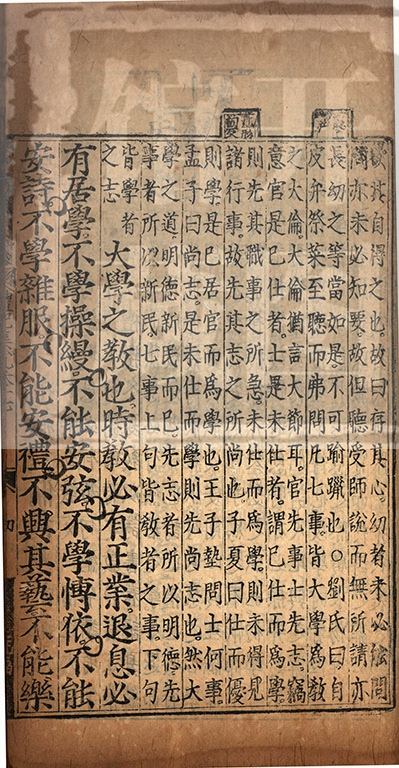 欲其自得之也。故曰存其心。幼者未必能問
問亦未必知要。故但聽受師說而無所請亦
長幼之等當如是。不可踰躐也○劉氏曰。自
皮弁祭菜至聽而弗問凡七事。皆大學為教
之大倫大倫猶言大節耳。官先事士先志。竊
意官是已仕者。士是未仕者。謂已仕而為學
則先其職事之所急。未仕而爲學則未得見
諸行事。故先其志之所尚也子夏曰仕而優
則學是已居官而為學也。王子墊問士何事。
孟子曰尚志。是未仕而學則先尚志也。然大
學之道明德新民而已。先志者所以明德。先
事者所以新民七事上句皆敎者之事。下句
皆學者
之志
大學之敎也時敎必有正業。退息必
有居學。不學操縵不能安弦。不學愽依不能
安詩不學雜服不能安禮不興其藝不能樂